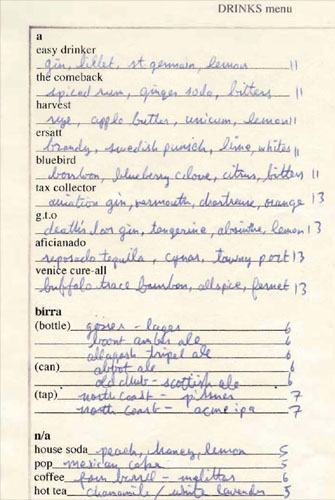 DRINKS menu
a
easy drinker
gin, lillet, st germain, lemon 11
the comeback
spiced rum, ginger soda, bitters 11
harvest
rye, apple butter, unicum, lemon 11
ersatt
brandy, swedish punsch, lime, whites 11
bluebird
bourbon, blueberry clove, citrus, bitters 11
tax collector
aviation gin, vermouth, chartreuse, orange 13
g.t.o
death's door gin, tangerine, absinthe, lemon 13
aficianado
reposado tequila, cynar, tawny port 13
venice cure-all
buffalo trace bourbon, allspice, fernet 13
birra
(bottle) gosser - lager 6
bont amber ale 6
allagash tripel ale 6
(can) abbot ale 6
old chub - scottish ale 6
(tap) north coast - pilsner 7
north coast - acme ipa 7
n/a
house soda peach, honey, lemon 5
pop mexican coke 5
coffee farm barrel - melitta 6
hot tea chamomile / mint, lavender 5